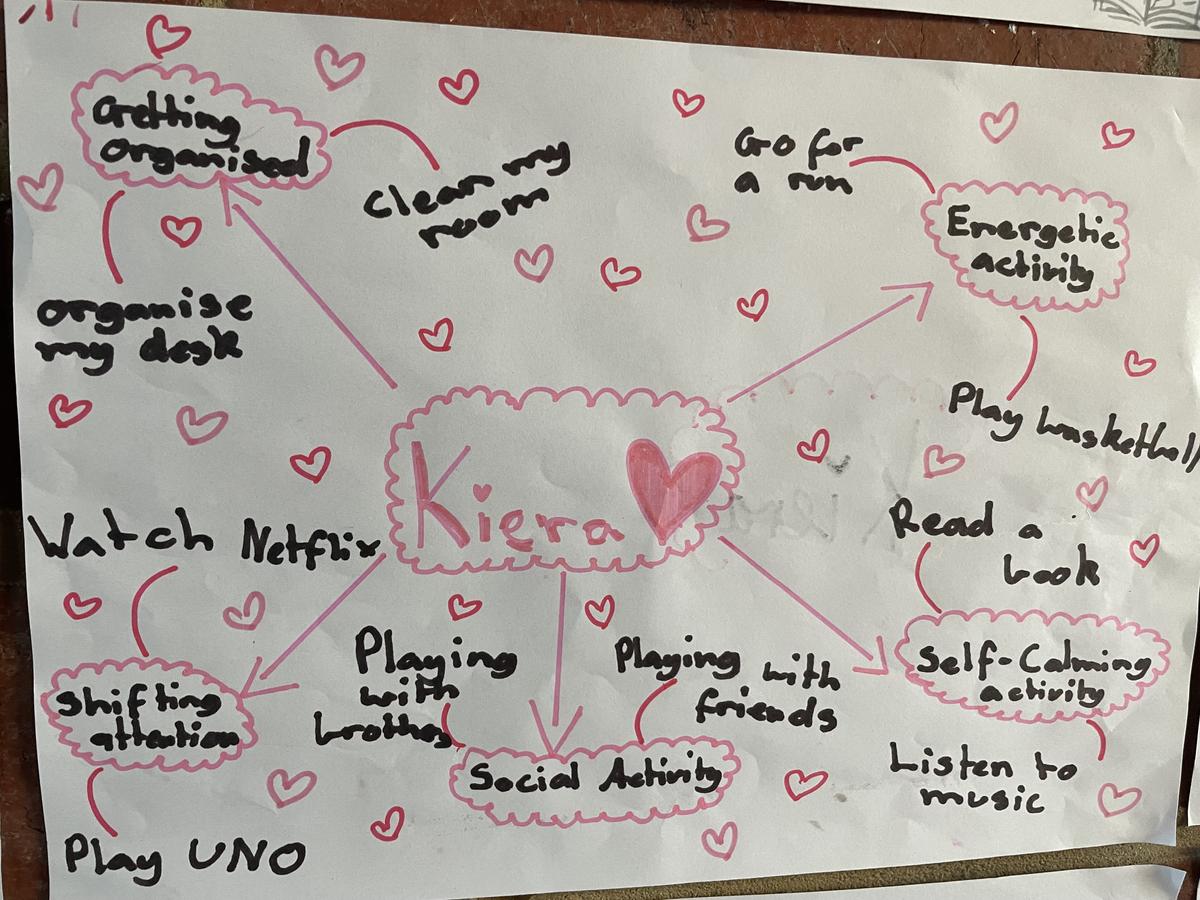 Getting
organised
Clean my
room
organise
my desk
Go for
a run
Energetic
activity
Play basketball
Kiera
Watch Netflix
Shifting
attention
Play UNO
Playing
with
brothers
Playing with
friends
Social Activity
Read a
book
Self-Calming
activity
Listen to
music